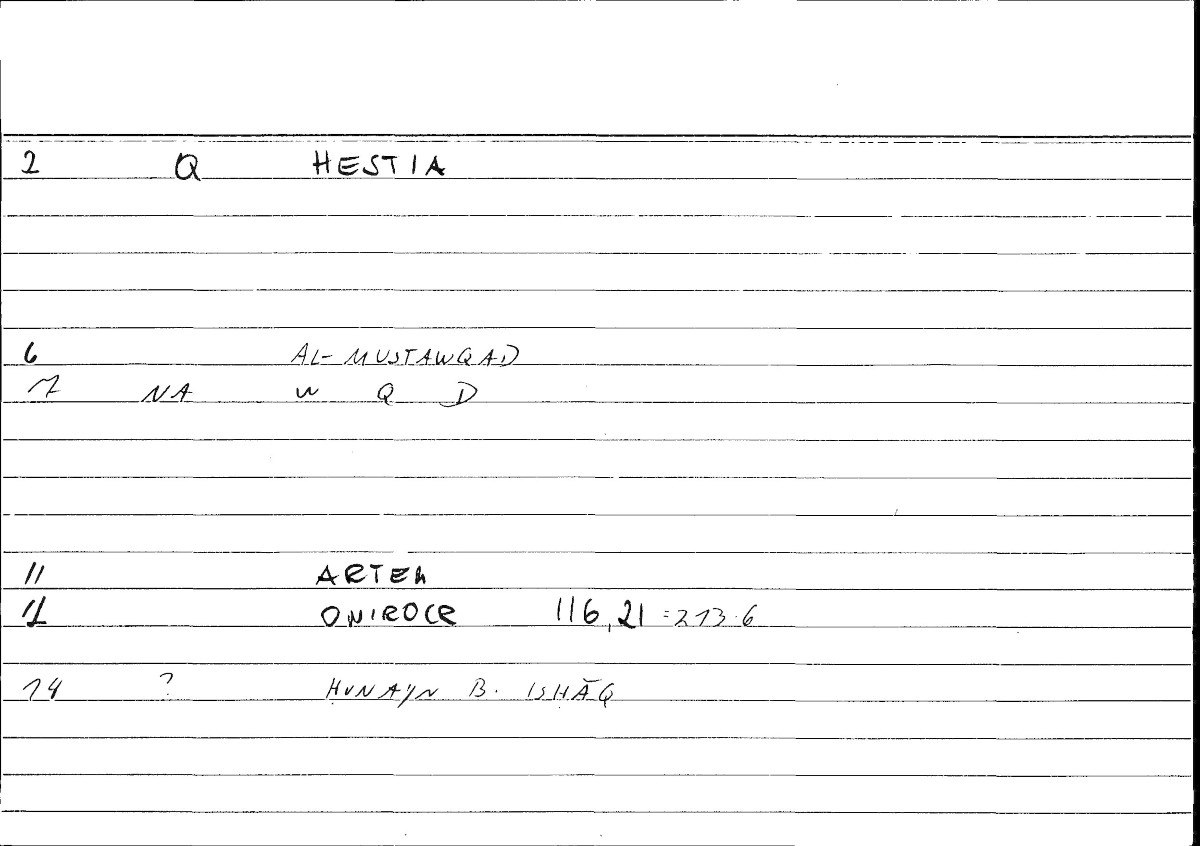 2 Q HESTIA
6 AL-MUSTAWQAD
7 NA W Q D
11 ARTEM
12 ONIROCR 116,21 =213.6
14 ? ḤUNAYN B. ISḤĀQ